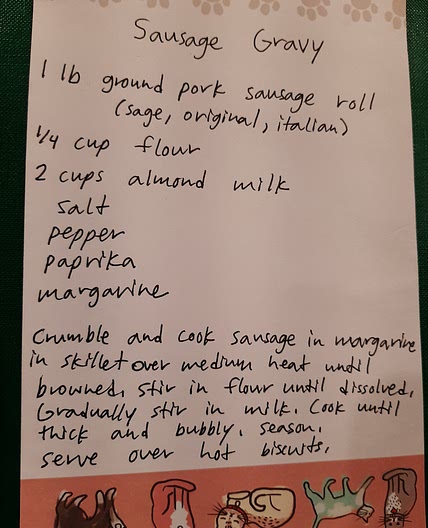 Sausage Gravy
1 lb ground pork sausage roll
(sage, original, italian)
1/4 cup flour
2 cups almond milk
salt
pepper
paprika
margarine
Crumble and cook sausage in margarine
in skillet over medium heat until
browned. Stir in flour until dissolved.
Gradually stir in milk. Cook until
thick and bubbly. Season.
Serve over hot biscuits.